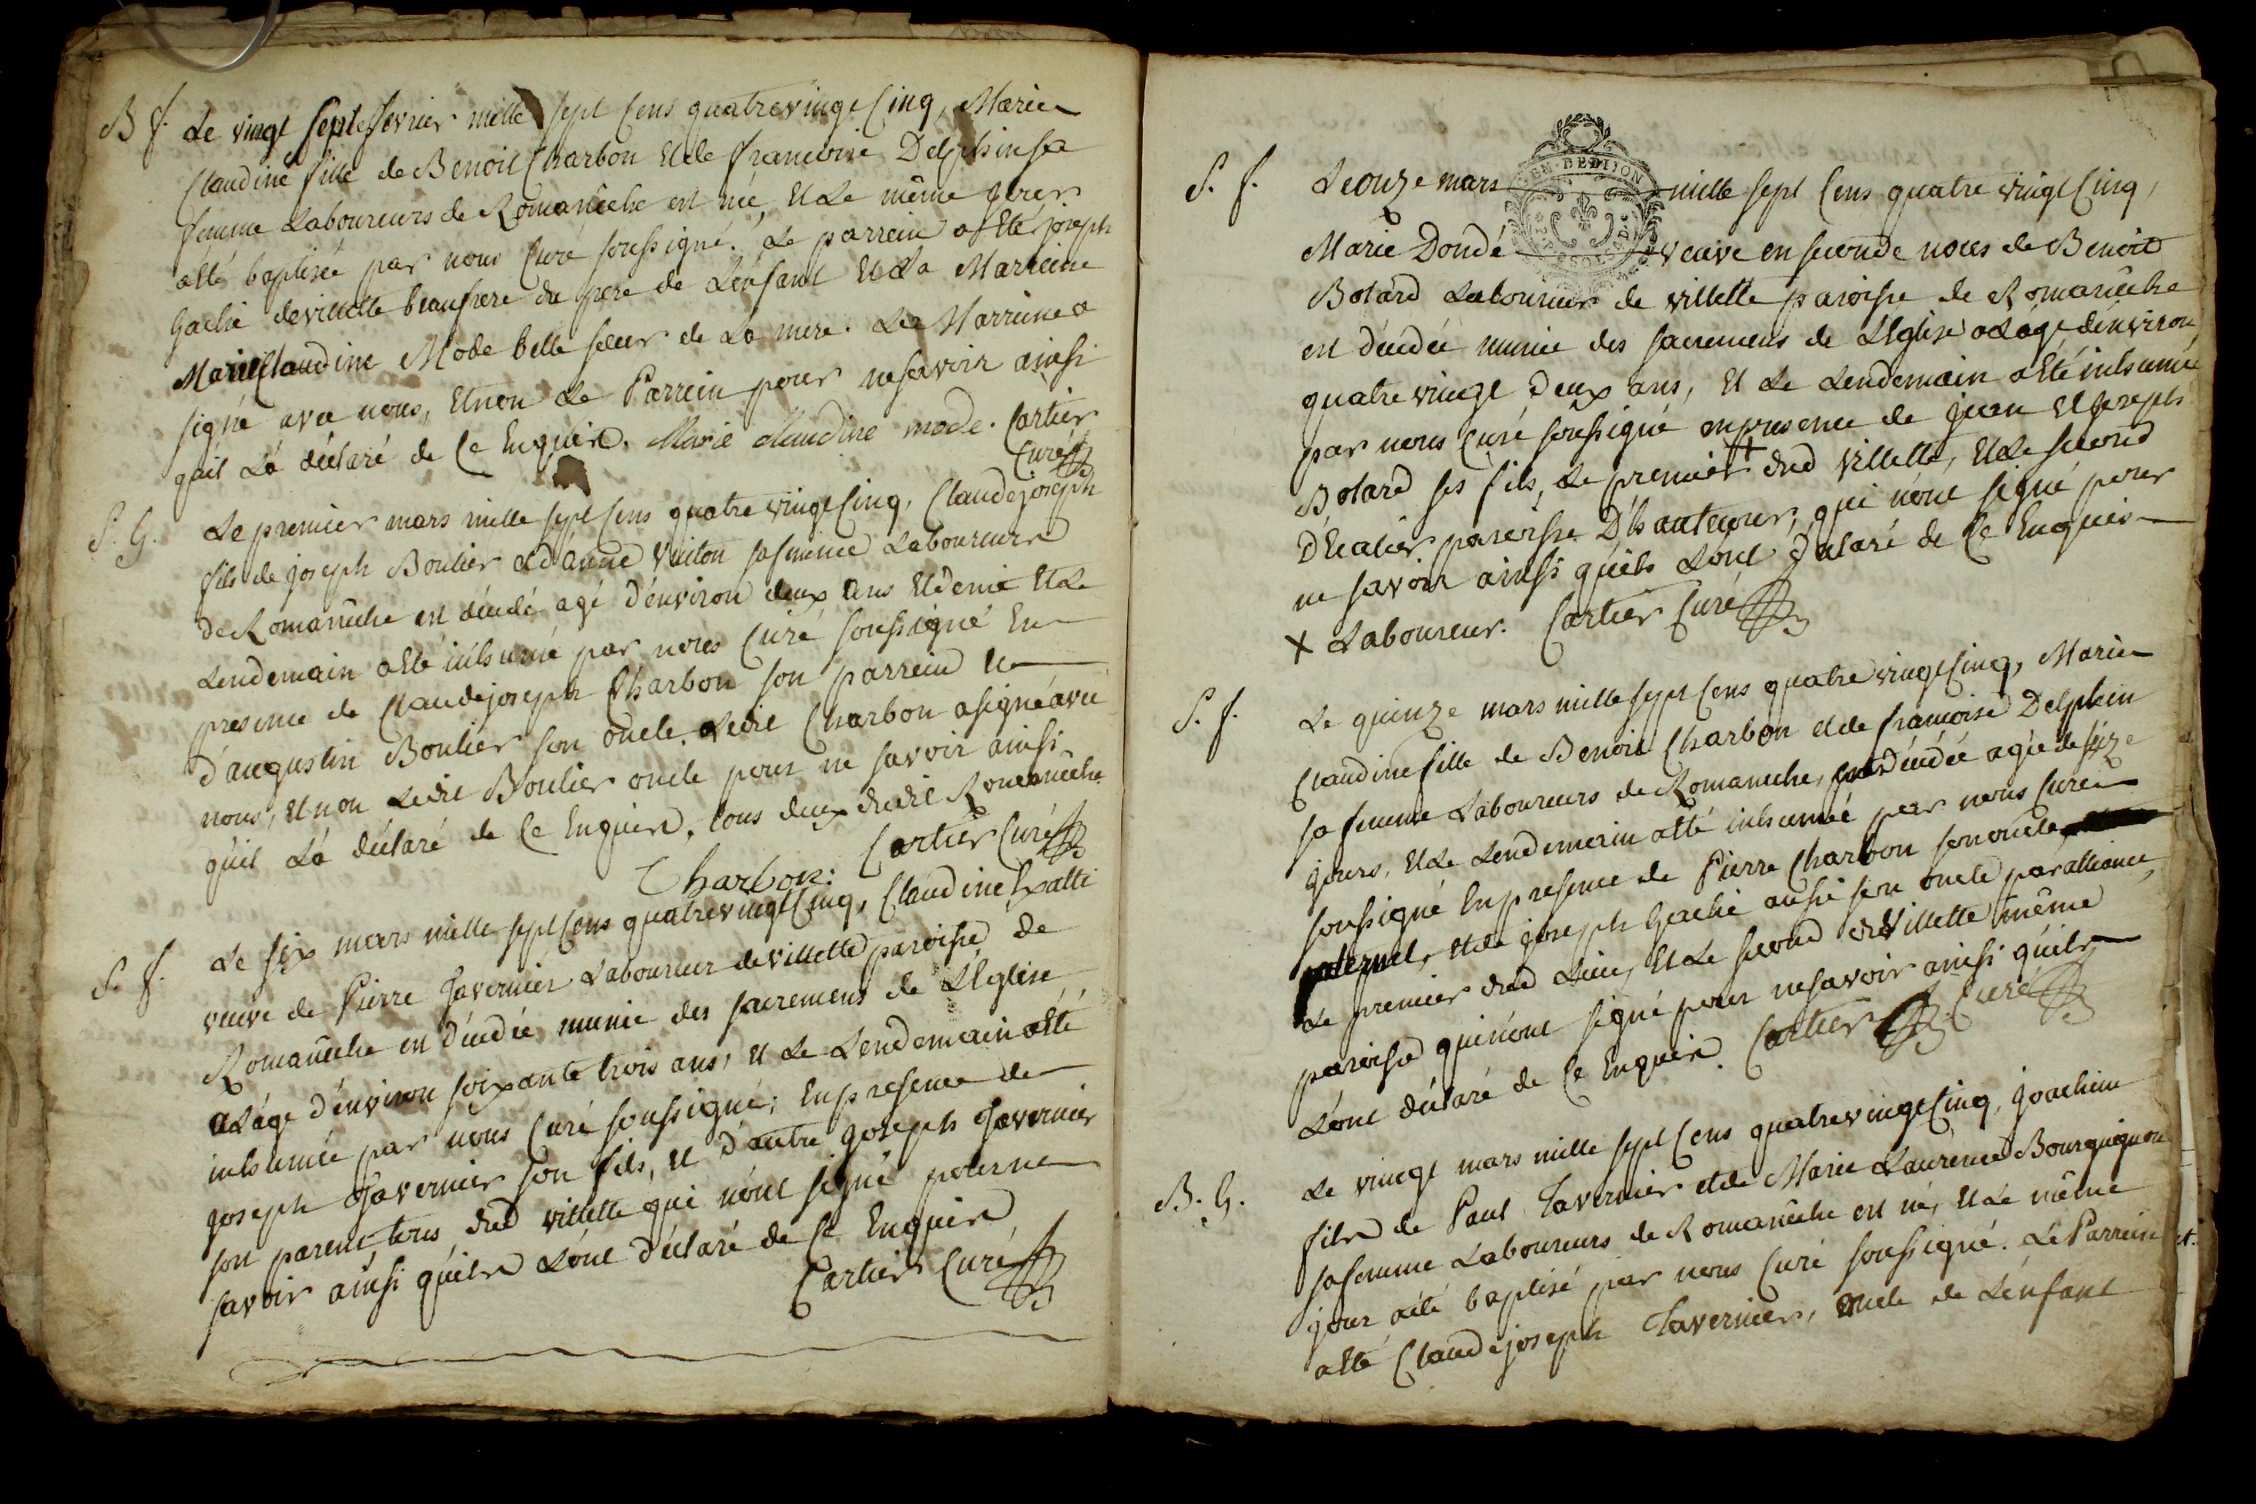 B f. Le vingt sept fevrier mille sept cens quatrevingt cinq, Marie
Claudine fille de Benoit Charbon et de francoise Delphin sa
femme Laboureurs de Romanêche est née, et Le même jour
a Eté baptisée par nous Curé soussigné. Le parrein a Eté joseph
Gache de villette beaufrere du pere de L'enfant et La Marreine
Marie Claudine Mode belle sœur de La mere. La Marreine a
signé avec nous, et non Le Parrein pour ne savoir ainsi
quil L'a déclaré de ce Enquis. Marie claudine mode. Cartier
Curé
S. G. Le premier mars mille sept cens quatre vingt cinq, Claudejoseph
fils de joseph Boulier et d'anne Vuiton sa femme Laboureurs
de Romanêche est décédé agé d'environ deux ans et demie et Le
Lendemain a Eté inhumé par nous Curé soussigné En
presence de Claudejoseph Charbon son parrein et
d'augustin Boulier son oncle. Ledit Charbon a signé avec
nous, et non Ledit Boulier oncle pour ne savoir ainsi
qu'il L'a déclaré de ce Enquis, tous deux dudit Romanêche.
Charbon. Cartier Curé
S. f. Le six mars mille sept cens quatrevingt cinq, Claudine
veuve de Pierre Tavernier Laboureur de villette paroisse de
Romanêche est décédée munie des sacremens de L'Eglise
a L'age d'environ soixante trois ans, et Le Lendemain a Eté
inhumée par nous Curé soussigné, En presence de
joseph Tavernier son fils, et d'autre joseph Tavernier
son parent tous dud villette qui n'ont signé pour ne
savoir ainsi qu'ils L'ont déclaré de ce Enquis
Cartier Curé
S. f. Le onze mars mille sept cens quatre vingt cinq,
GEN. BED. DIJON
Marie Dondé veuve en seconde noces de Benoit
Botard Laboureur de villette paroisse de Romanêche
est décédée munie des sacremens de L'Eglise a L'age d'environ
quatre vingt deux ans, et Le Lendemain a Eté inhumée
par nous Curé soussigné en presence de jean et joseph
Botard ses fils, Le premier + dud villette, et Le second
d'Ecalier paroisse D'hautecour, qui n'ont signé pour
ne savoir ainsi qu'ils L'ont déclaré de ce Enquis
X Laboureur. Cartier Curé
S. f. Le quinze mars mille sept cens quatre vingt cinq, Marie
Claudine fille de Benoit Charbon et de francoise Delphin
sa femme Laboureurs de Romaneche, est décédée agée de seize
jours, et Le Lendemain a Eté inhumée par nous Curé
soussigné En presence de Pierre Charbon son oncle
paternel, et de joseph Gache aussi son oncle par alliance,
Le premier dud Lieu, et Le second de Villette même
paroisse qui n'ont signé pour ne savoir ainsi qu'ils
L'ont déclaré de ce Enquis. Cartier Curé
B. G. Le vingt mars mille sept cens quatrevingt cinq, joachim
fils de Paul Tavernier et de Marie Laurence Bourguignon
sa femme Laboureurs de Romanêche est né, et Le même
jour a été baptisé par nous Curé soussigné. Le Parrein
a Eté Claudejoseph Tavernier, oncle de L'enfant